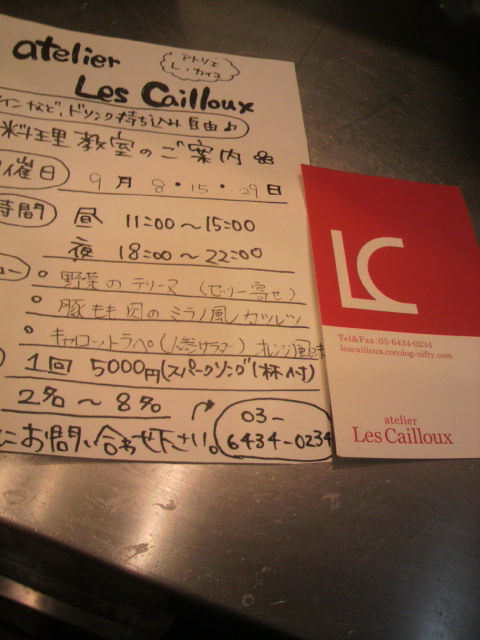 atelier
アトリエ
レ・カイユ
Les Cailloux
インなど、ドリンク持ち込み自由♪
料理教室のご案内
催日 9月 8・15・29日
時間 昼 11:00〜15:00
夜 18:00〜22:00
○ 野菜のテリーヌ (ゼリー寄せ)
○ 豚もも肉のミラノ風カツレツ
○ キャロットラペ(人参サラダ) オレンジ風味
1回 5000円(スパークリング1杯付)
2名〜8名
にお問い合わせ下さい。
03-
6434-0234
LC
Tel&Fax:03-6434-0234
lescailloux.cocolog-nifty.com
atelier
Les Cailloux